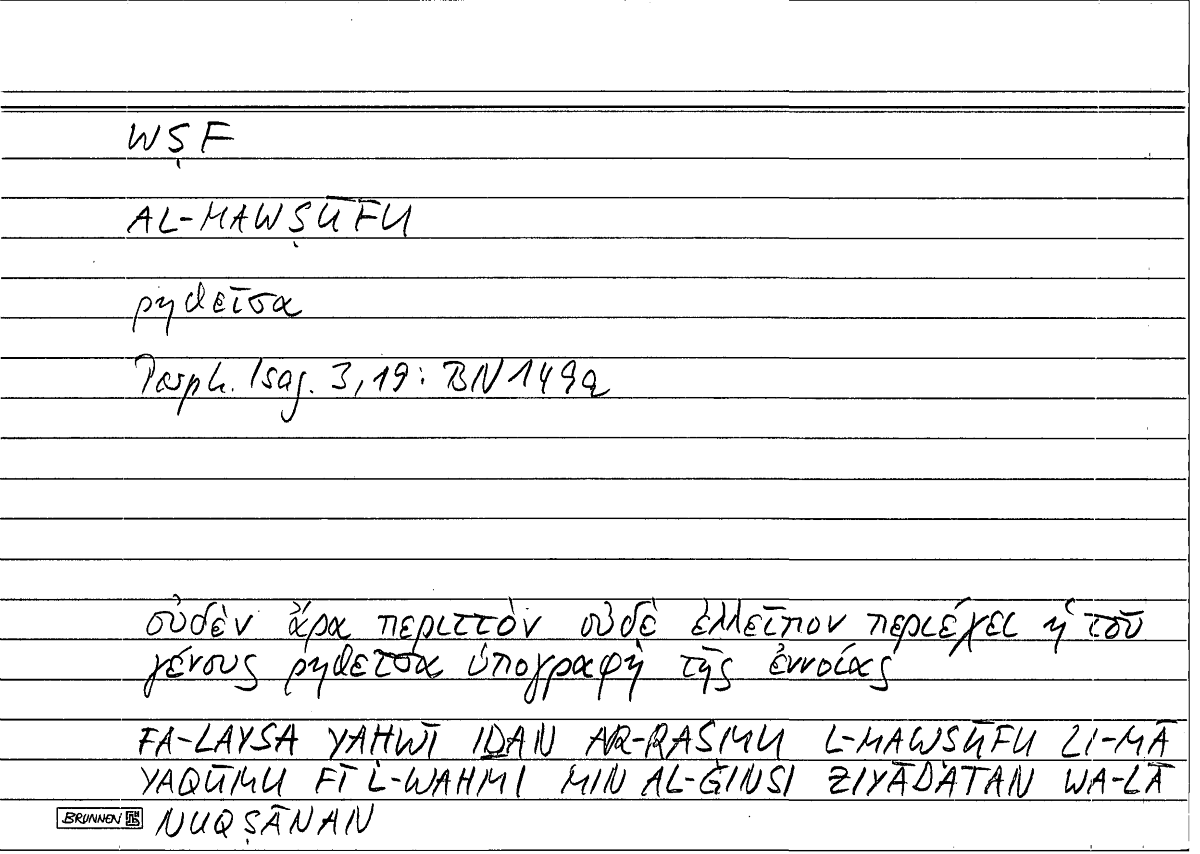 WṢF
AL-MAWṢŪFU
ρηθεῖσα
Porph. Isag. 3,19: BN 149a
οὐδὲν ἄρα περιττὸν οὐδὲ ἐλλεῖπον περιέχει ἡ τοῦ
γένους ρηθεῖσα ὑπογραφὴ τῆς ἐννοίας
FA-LAYSA YAḤWĪ IḎAN AR-RASMU L-MAWṢŪFU LI-MĀ
YAQŪMU FĪ L-WAHMI MIN AL-ǦINSI ZIYĀDATAN WA-LĀ
BRUNNEN NUQṢĀNAN